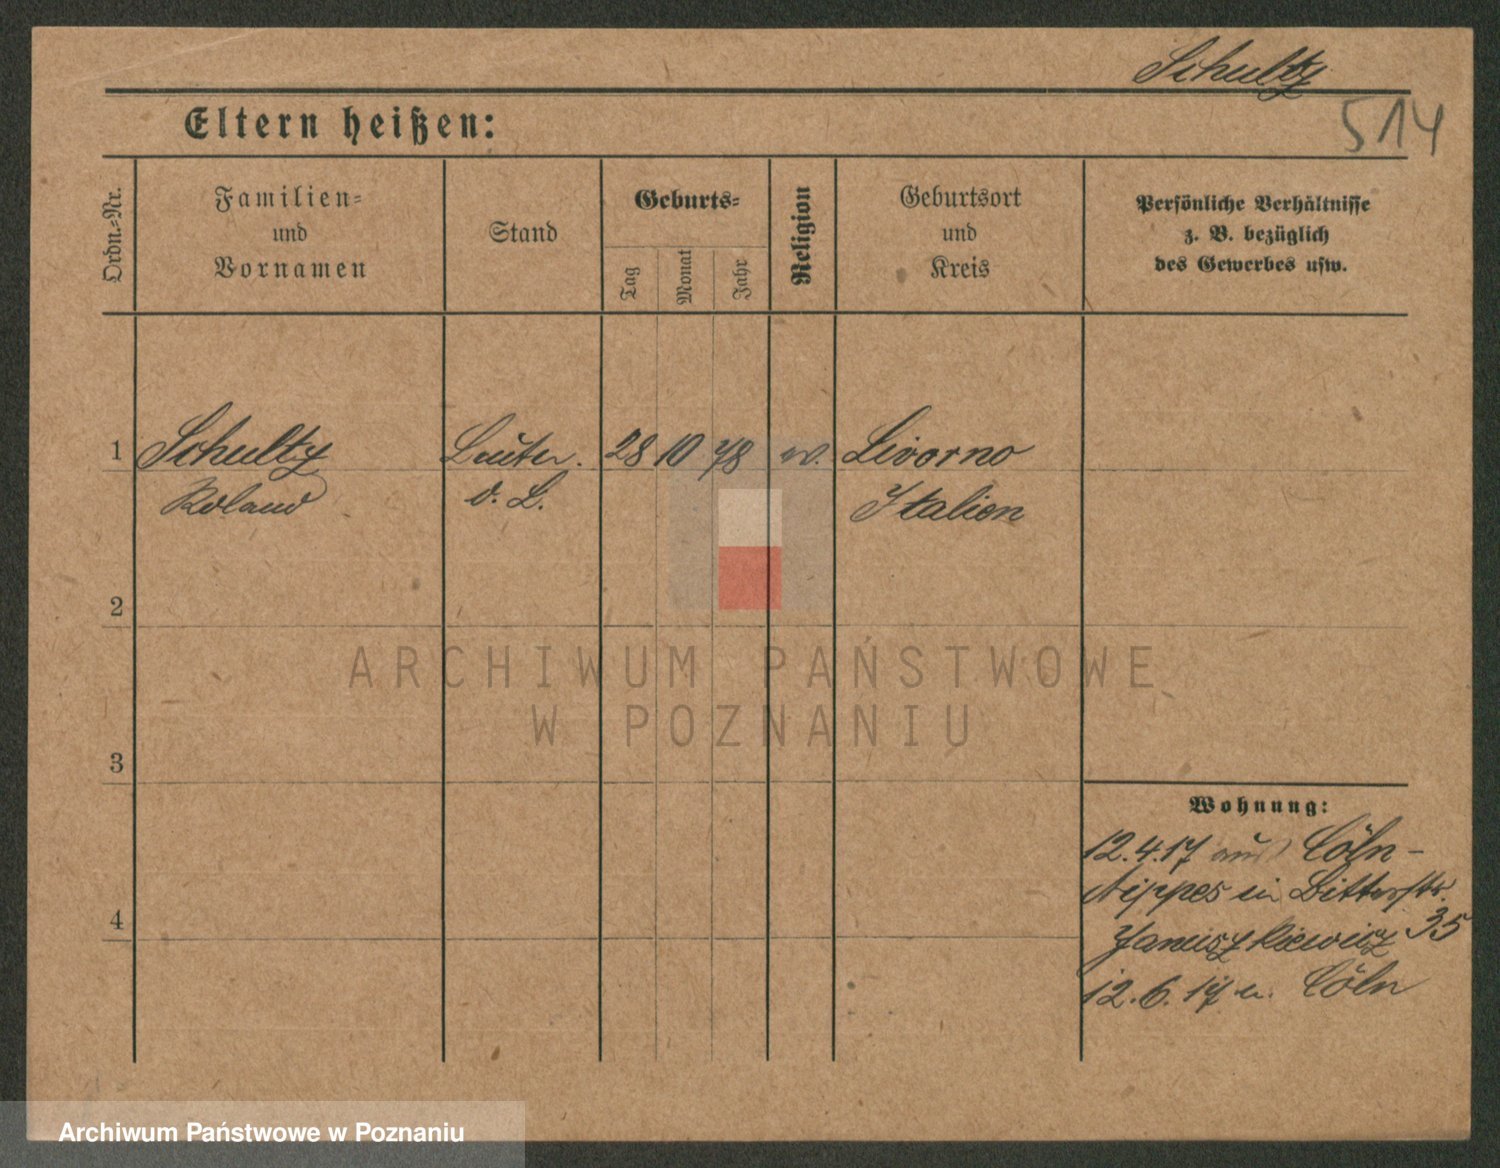 Schultz
514
Eltern heißen:
Ordn.-Nr.
Familien-
und
Vornamen
Stand
Geburts-
Tag
Monat
Jahr
Religion
Geburtsort
und
Kreis
Persönliche Verhältnisse
z. B. bezüglich
des Gewerbes usw.
1 Schultz Leutn. 28 10 78 ev. Livorno
Roland d. L. Italien
2
3
4
Wohnung:
12.4.17 aus Cöln-
Nippes in Bitterstr.
Januszkiewicz 35
12.6.17 n. Cöln
ARCHIWUM PAŃSTWOWE
W POZNANIU
Archiwum Państwowe w Poznaniu